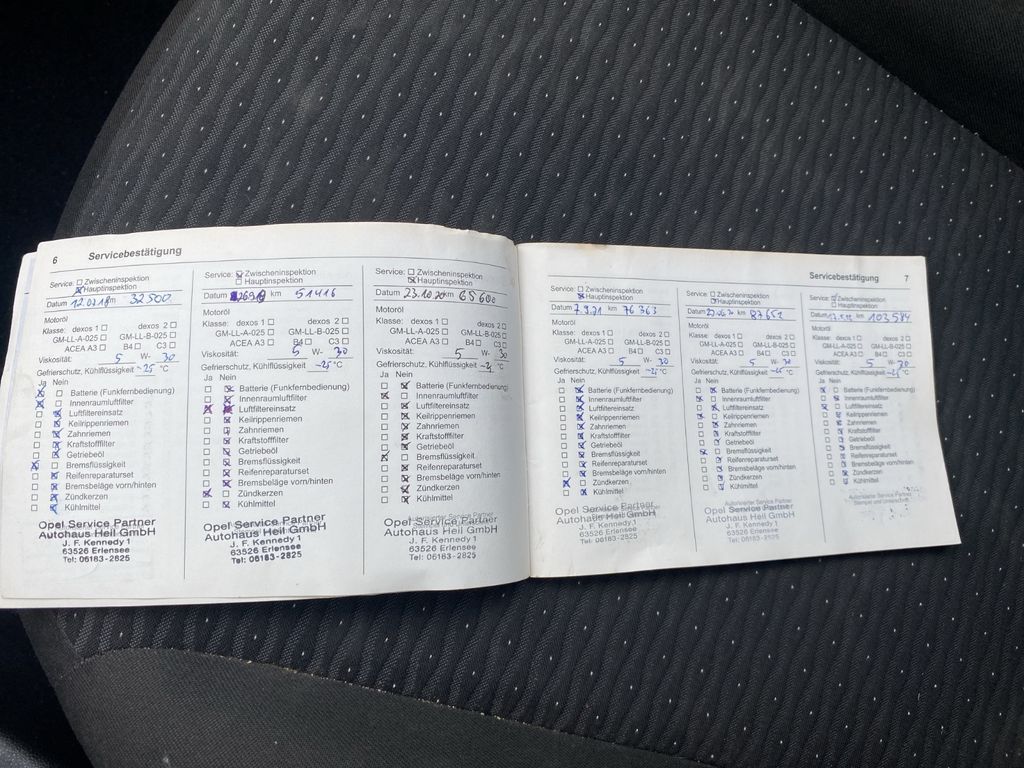 6 Servicebestätigung
Service: Zwischeninspektion
Hauptinspektion
Datum 12.07.18 km 32500
Motoröl
Klasse: dexos 1 dexos 2
GM-LL-A-025 GM-LL-B-025
ACEA A3 B4 C3
Viskosität: 5 W- 30
Gefrierschutz, Kühlflüssigkeit -25 °C
Ja Nein
Batterie (Funkfernbedienung)
Innenraumluftfilter
Luftfiltereinsatz
Keilrippenriemen
Zahnriemen
Kraftstofffilter
Getriebeöl
Bremsflüssigkeit
Reifenreparaturset
Bremsbeläge vorn/hinten
Zündkerzen
Kühlmittel
Opel Service Partner
Autohaus Heil GmbH
J. F. Kennedy 1
63526 Erlensee
Tel: 06183-2825
Service: Zwischeninspektion
Hauptinspektion
Datum km 51416
Motoröl
Klasse: dexos 1 dexos 2
GM-LL-A-025 GM-LL-B-025
ACEA A3 B4 C3
Viskosität: 5 W- 30
Gefrierschutz, Kühlflüssigkeit -25 °C
Ja Nein
Batterie (Funkfernbedienung)
Innenraumluftfilter
Luftfiltereinsatz
Keilrippenriemen
Zahnriemen
Kraftstofffilter
Getriebeöl
Bremsflüssigkeit
Reifenreparaturset
Bremsbeläge vorn/hinten
Zündkerzen
Kühlmittel
Opel Service Partner
Autohaus Heil GmbH
J. F. Kennedy 1
63526 Erlensee
Tel: 06183-2825
Service: Zwischeninspektion
Hauptinspektion
Datum 23.10.20 km 65600
Motoröl
Klasse: dexos 1 dexos 2
GM-LL-A-025 GM-LL-B-025
ACEA A3 B4 C3
Viskosität: 5 W- 30
Gefrierschutz, Kühlflüssigkeit °C
Ja Nein
Batterie (Funkfernbedienung)
Innenraumluftfilter
Luftfiltereinsatz
Keilrippenriemen
Zahnriemen
Kraftstofffilter
Getriebeöl
Bremsflüssigkeit
Reifenreparaturset
Bremsbeläge vorn/hinten
Zündkerzen
Kühlmittel
Opel Service Partner
Autohaus Heil GmbH
J. F. Kennedy 1
63526 Erlensee
Tel: 06183-2825
Servicebestätigung 7
Service: Zwischeninspektion
Hauptinspektion
Datum 7.9.21 km 76363
Motoröl
Klasse: dexos 1 dexos 2
GM-LL-A-025 GM-LL-B-025
ACEA A3 B4 C3
Viskosität: 5 W- 30
Gefrierschutz, Kühlflüssigkeit -25 °C
Ja Nein
Batterie (Funkfernbedienung)
Innenraumluftfilter
Luftfiltereinsatz
Keilrippenriemen
Zahnriemen
Kraftstofffilter
Getriebeöl
Bremsflüssigkeit
Reifenreparaturset
Bremsbeläge vorn/hinten
Zündkerzen
Kühlmittel
Opel Service Partner
Autohaus Heil GmbH
J. F. Kennedy 1
63526 Erlensee
Tel: 06183-2825
Service: Zwischeninspektion
Hauptinspektion
Datum km 87651
Motoröl
Klasse: dexos 1 dexos 2
GM-LL-A-025 GM-LL-B-025
ACEA A3 B4 C3
Viskosität: 5 W- 30
Gefrierschutz, Kühlflüssigkeit °C
Ja Nein
Batterie (Funkfernbedienung)
Innenraumluftfilter
Luftfiltereinsatz
Keilrippenriemen
Zahnriemen
Kraftstofffilter
Getriebeöl
Bremsflüssigkeit
Reifenreparaturset
Bremsbeläge vorn/hinten
Zündkerzen
Kühlmittel
Opel Service Partner
Autohaus Heil GmbH
J. F. Kennedy 1
63526 Erlensee
Tel: 06183-2825
Service: Zwischeninspektion
Hauptinspektion
Datum km 103584
Motoröl
Klasse: dexos 1 dexos 2
GM-LL-A-025 GM-LL-B-025
ACEA A3 B4 C3
Viskosität: 5 W- 30
Gefrierschutz, Kühlflüssigkeit °C
Ja Nein
Batterie (Funkfernbedienung)
Innenraumluftfilter
Luftfiltereinsatz
Keilrippenriemen
Zahnriemen
Kraftstofffilter
Getriebeöl
Bremsflüssigkeit
Reifenreparaturset
Bremsbeläge vorn/hinten
Zündkerzen
Kühlmittel
Autorisierter Service Partner
Stempel und Unterschrift